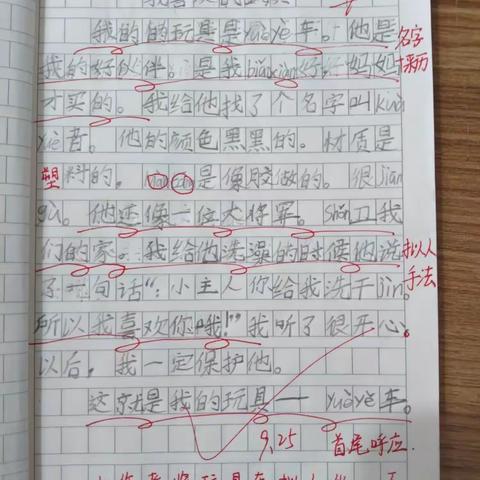 我的的玩具是yuè yè车。他是 名字
我的好伙伴。是我biǎo xiàn好妈妈 来历
才买的。我给他找了个名字叫kuà
yuè者。他的颜色黑黑的。材质是
塑料的。是像胶做的。很jian
gù。他还像一位大将军。shǒu卫我
们的家。我给他洗澡的时候他说 拟人
了一句话“：小主人你给我洗干jìn。 手法
所以我喜欢你哦！”我听了很开心。
以后，我一定保护他。
这就是我的玩具——yuè yè车。
9.25 首尾呼应